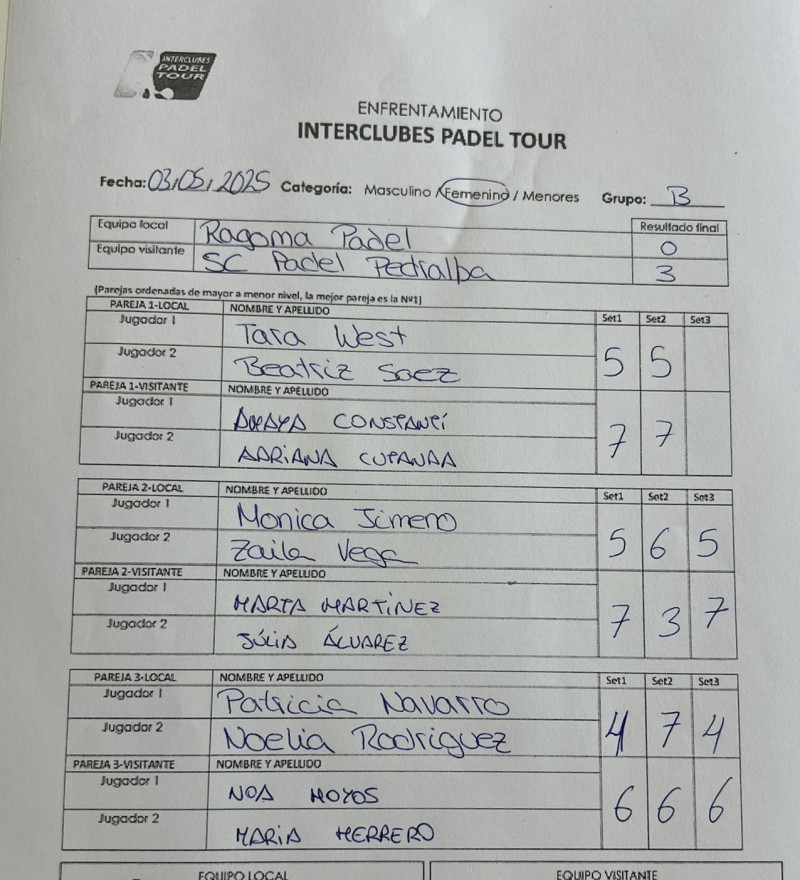 INTERCLUBES
PADEL
TOUR
ENFRENTAMIENTO
INTERCLUBES PADEL TOUR
Fecha: 03/05/2025 Categoría: Masculino / Femenino / Menores Grupo: B
Equipo local Ragoma Padel Resultado final 0
Equipo visitante SC Padel Pedralba 3
(Parejas ordenadas de mayor a menor nivel, la mejor pareja es la Nº1)
PAREJA 1-LOCAL NOMBRE Y APELLIDO Set1 Set2 Set3
Jugador 1 Tara West
Jugador 2 Beatriz Saez 5 5
PAREJA 1-VISITANTE NOMBRE Y APELLIDO
Jugador 1 AMAYA CONSTANTÍ 7 7
Jugador 2 ADRIANA
PAREJA 2-LOCAL NOMBRE Y APELLIDO Set1 Set2 Set3
Jugador 1 Monica Jimeno
Jugador 2 Zaila Vega 5 6 5
PAREJA 2-VISITANTE NOMBRE Y APELLIDO
Jugador 1 MARTA MARTÍNEZ 7 3 7
Jugador 2 JÚLIA ÁLVAREZ
PAREJA 3-LOCAL NOMBRE Y APELLIDO Set1 Set2 Set3
Jugador 1 Patricia Navarro
Jugador 2 Noelia Rodriguez 4 7 4
PAREJA 3-VISITANTE NOMBRE Y APELLIDO
Jugador 1 NOA HOYOS 6 6 6
Jugador 2 MARIA HERRERO
EQUIPO LOCAL EQUIPO VISITANTE